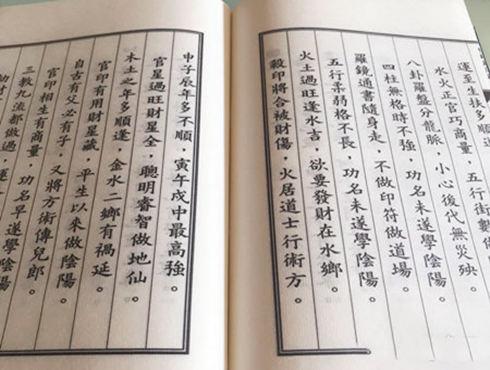 運至生扶多順
水火正官巧商量，五行術製
八卦羅盤分龍脈，小心後代無火殃。
四柱無格時不強，功名未遂學陰陽。
羅鏡通書隨身走，不做印符做道場。
五行柔弱格不長，功名未遂學陰陽。
火土過旺逢水吉，欲要發財在水鄉。
殺印將合被財傷，火居道士行術方。
申子辰年多不順，寅午戌中最高強。
官星過旺財星全，聰明睿智做地仙。
木土之年多順逢，金水二鄉有禍延。
官印有用財星藏，平生以來做陰陽。
自古有父必有子，又將方術傳兒郎。
官印相生有商量，功名早遂學陰陽。
三教九流都做過，運